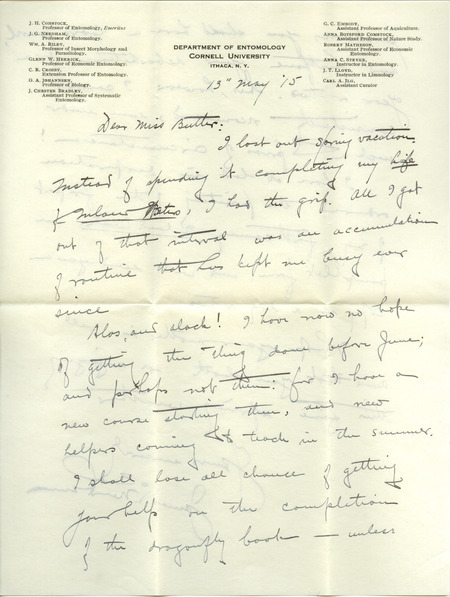 J. H. COMSTOCK,
Professor of Entomology, Emeritus
J. G. NEEDHAM,
Professor of Entomology.
WM. A. RILEY,
Professor of Insect Morphology and
Parasitology.
GLENN W. HERRICK,
Professor of Economic Entomology.
C. R. CROSBY,
Extension Professor of Entomology.
O. A. JOHANNSEN,
Professor of Biology.
J. CHESTER BRADLEY,
Assistant Professor of Systematic
Entomology.
DEPARTMENT OF ENTOMOLOGY
CORNELL UNIVERSITY
ITHACA, N. Y.
G. C. EMBODY,
Assistant Professor of Aquaculture.
ANNA BOTSFORD COMSTOCK,
Assistant Professor of Nature Study.
ROBERT MATHESON,
Assistant Professor of Economic
Entomology.
ANNA C. STRYKE,
Instructor in Entomology.
J. T. LLOYD,
Instructor in Limnology
CARL A. ILG,
Assistant Curator
13" May '15
Dear Miss Butler:
I lost out spring vacation.
Instead of spending it completing my life
of Inland Waters, I had the grip. All I got
out of that interval was an accumulation
of routine that has kept me busy ever
since
Alas, and alack! I have now no hope
of getting the thing done before June;
and perhaps not then: for I have a
new course starting then, and new
helpers coming to teach in the summer.
I shall lose all chance of getting
your help on the completion
of the dragonfly book — unless